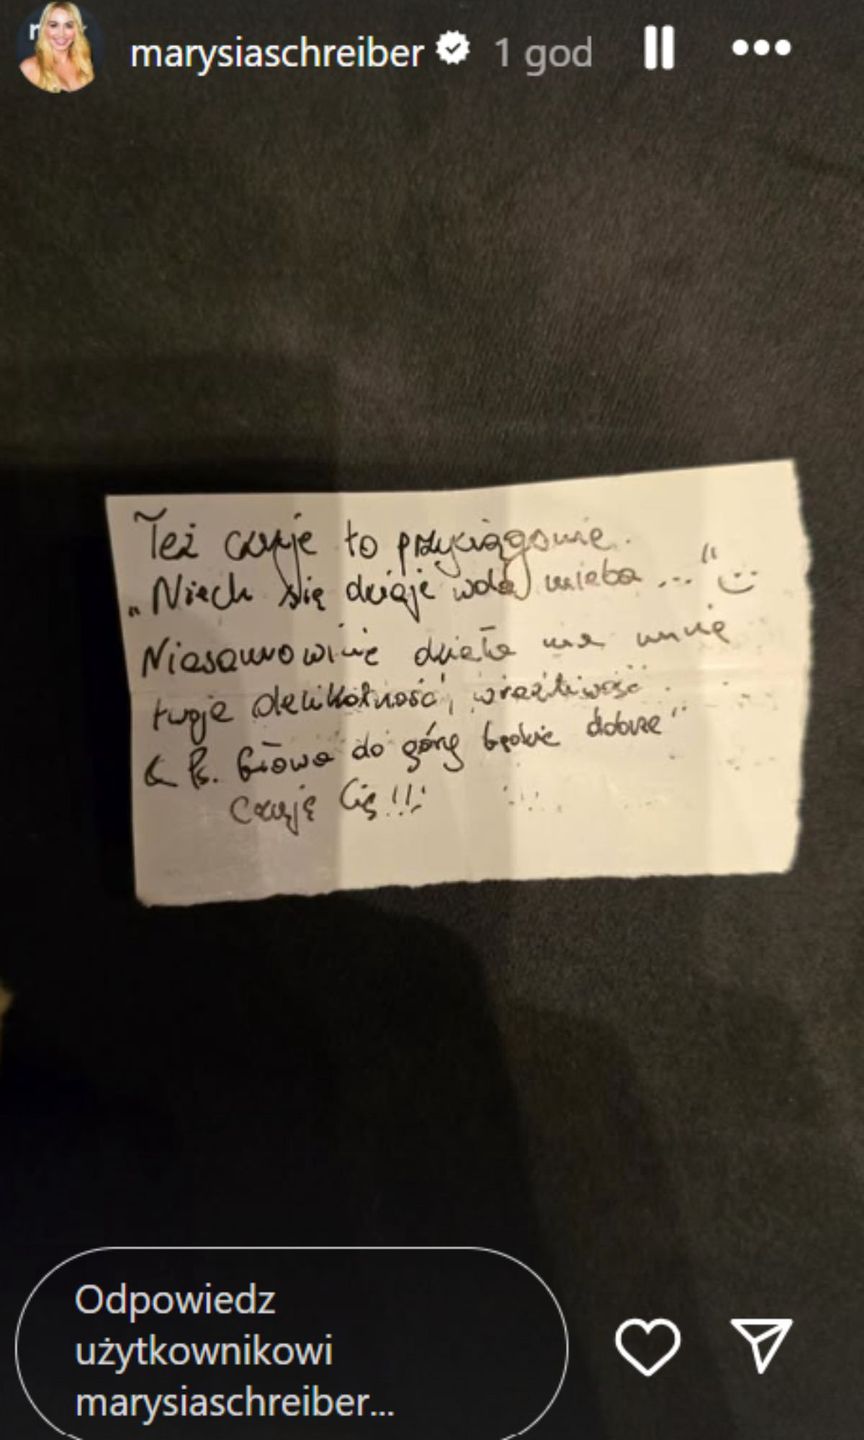 marysiaschreiber 1 god
Też czuje to przyciąganie.
„Niech się dzieje wola nieba..."
Niesamowicie działa na mnie
twoje delikatność, wrażliwość.
& Ps. Głowa do góry będzie dobrze"
Czuję Cię!!!
Odpowiedz
użytkownikowi
marysiaschreiber...